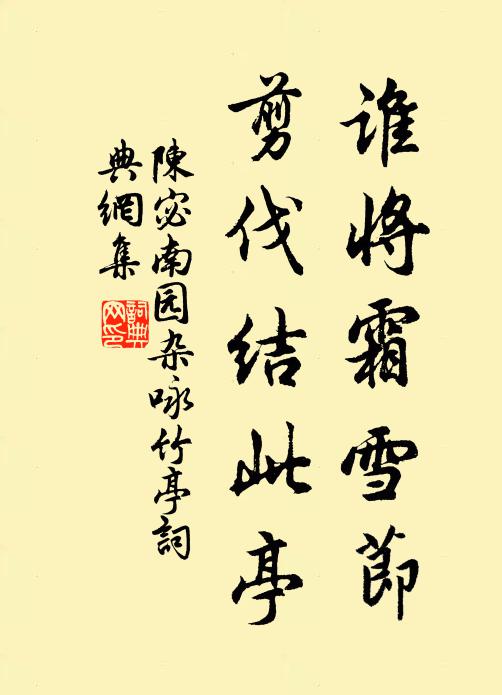 谁将霜雪節
剪伐结此亭
陳宓南园杂咏竹亭詞
典網集
詞典网印